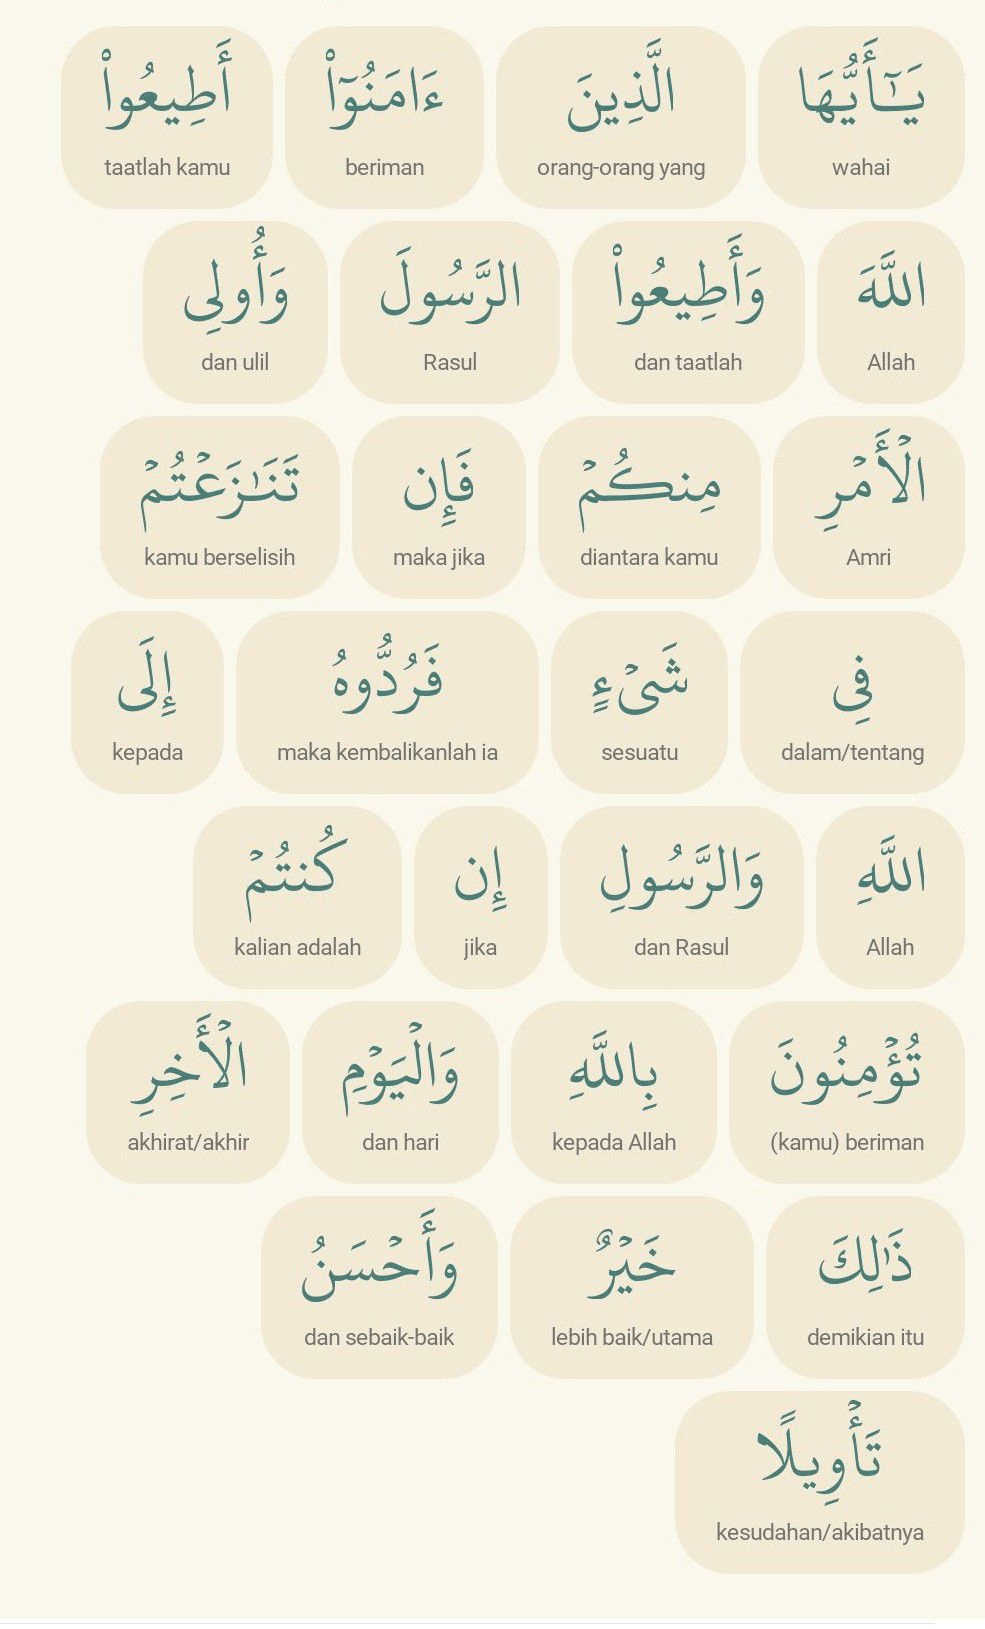 يَـٰٓأَيُّهَا الَّذِينَ ءَامَنُوٓا۟ أَطِيعُوا۟
wahai orang-orang yang beriman taatlah kamu
اللَّهَ وَأَطِيعُوا۟ الرَّسُولَ وَأُولِى
Allah dan taatlah Rasul dan ulil
الْأَمْرِ مِنكُمْ فَإِن تَنَـٰزَعْتُمْ
Amri diantara kamu maka jika kamu berselisih
فِى شَىْءٍ فَرُدُّوهُ إِلَى
dalam/tentang sesuatu maka kembalikanlah ia kepada
اللَّهِ وَالرَّسُولِ إِن كُنتُمْ
Allah dan Rasul jika kalian adalah
تُؤْمِنُونَ بِاللَّهِ وَالْيَوْمِ الْأَخِرِ
(kamu) beriman kepada Allah dan hari akhirat/akhir
ذَٰلِكَ خَيْرٌ وَأَحْسَنُ
demikian itu lebih baik/utama dan sebaik-baik
تَأْوِيلًا
kesudahan/akibatnya